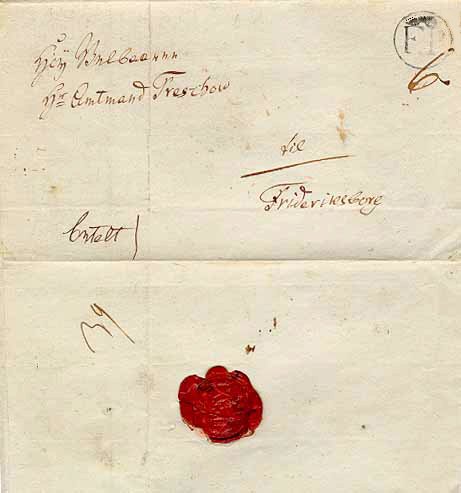 6
Høy Velbaarne
Hr Amtmand Treschow
til
Friderichsborg
Betalt
39